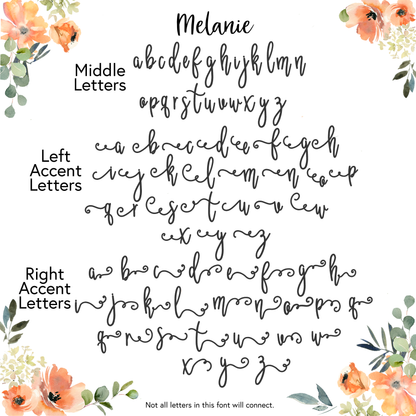 Melanie
Middle Letters
abcdefghijklmn
opqrstuvwxyz
Left Accent Letters
a b c d e f g h
i j k l m n o p
q r s t u v w
x y z
Right Accent Letters
a b c d e f g h
i j k l m n o p q
q r s t u v w
x y z
Not all letters in this font will connect.